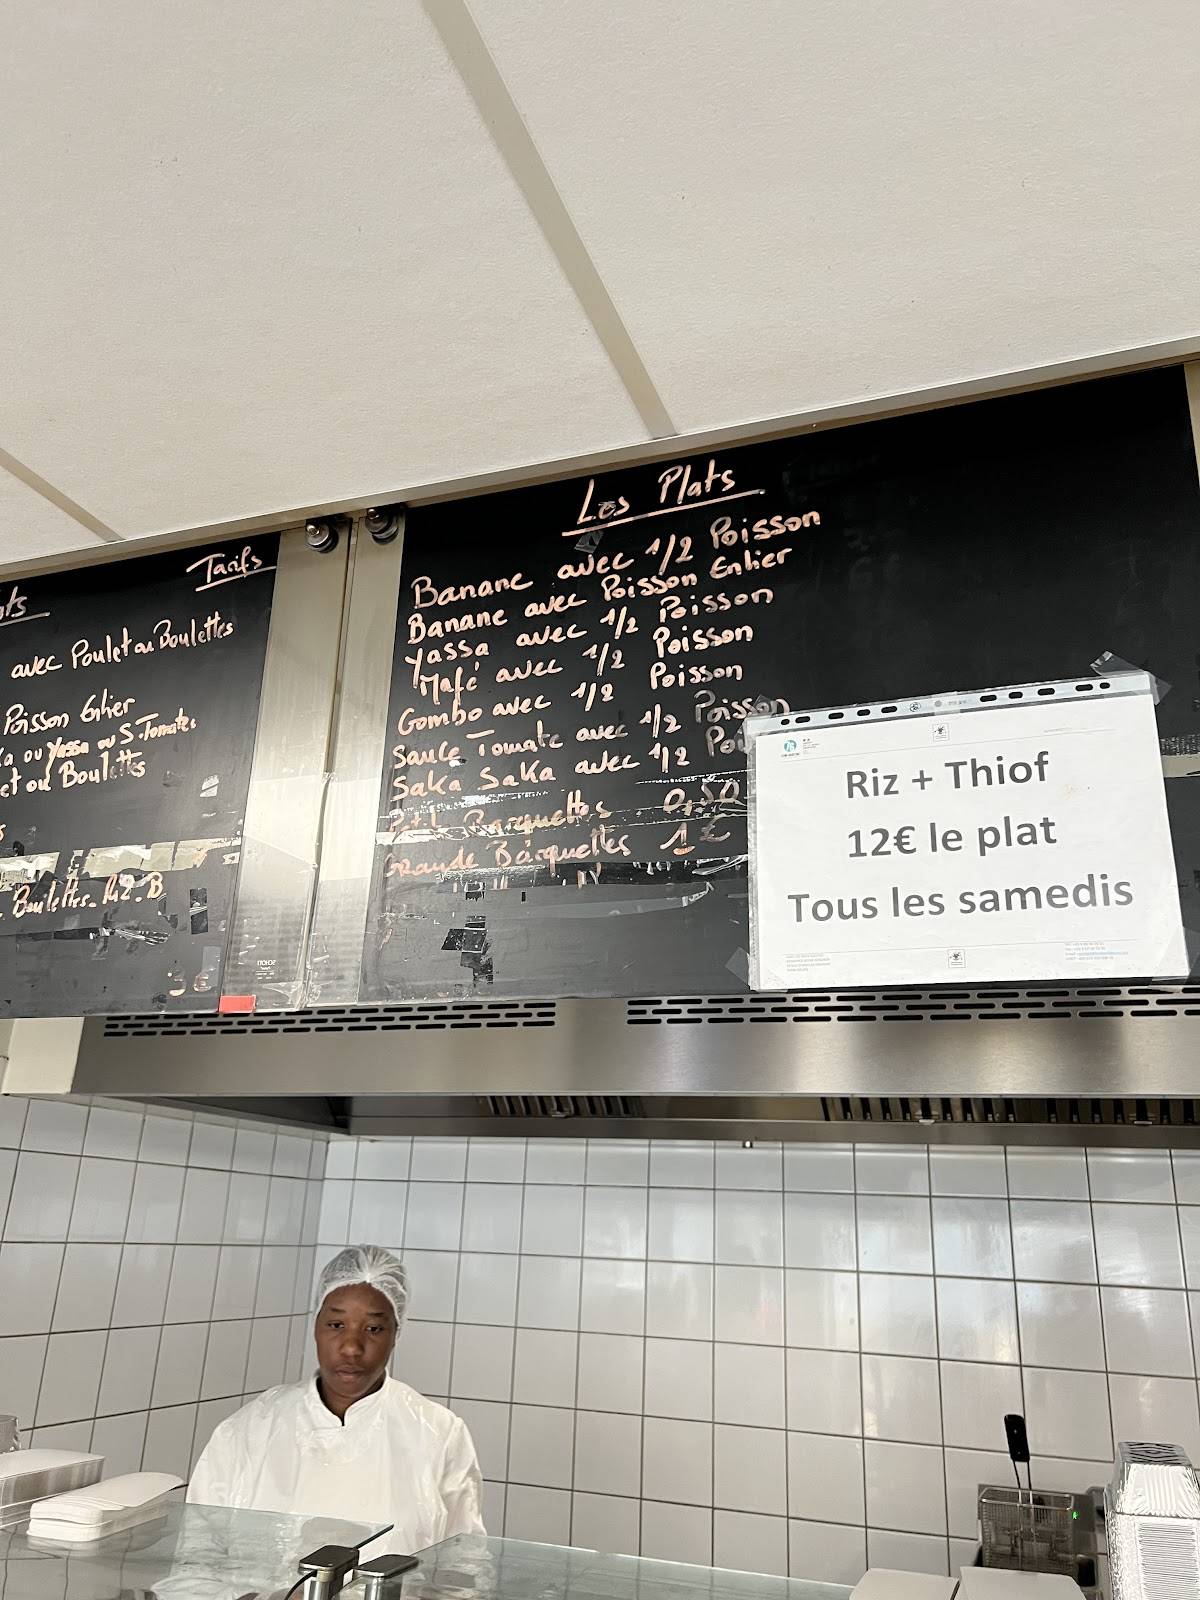 Tarifs
avec Poulet ou Boulettes
Poisson Entier
ou Yassa ou S. Tomate
et ou Boulettes
Boulettes - Riz - B
Les Plats
Banane avec 1/2 Poisson
Banane avec Poisson Entier
Yassa avec 1/2 Poisson
Mafé avec 1/2 Poisson
Gombo avec 1/2 Poisson
Sauce Tomate avec 1/2 Poisson
Saka Saka avec 1/2 Poi
Petit Barquettes 0,50
Grande Barquettes 1 €
Riz + Thiof
12€ le plat
Tous les samedis